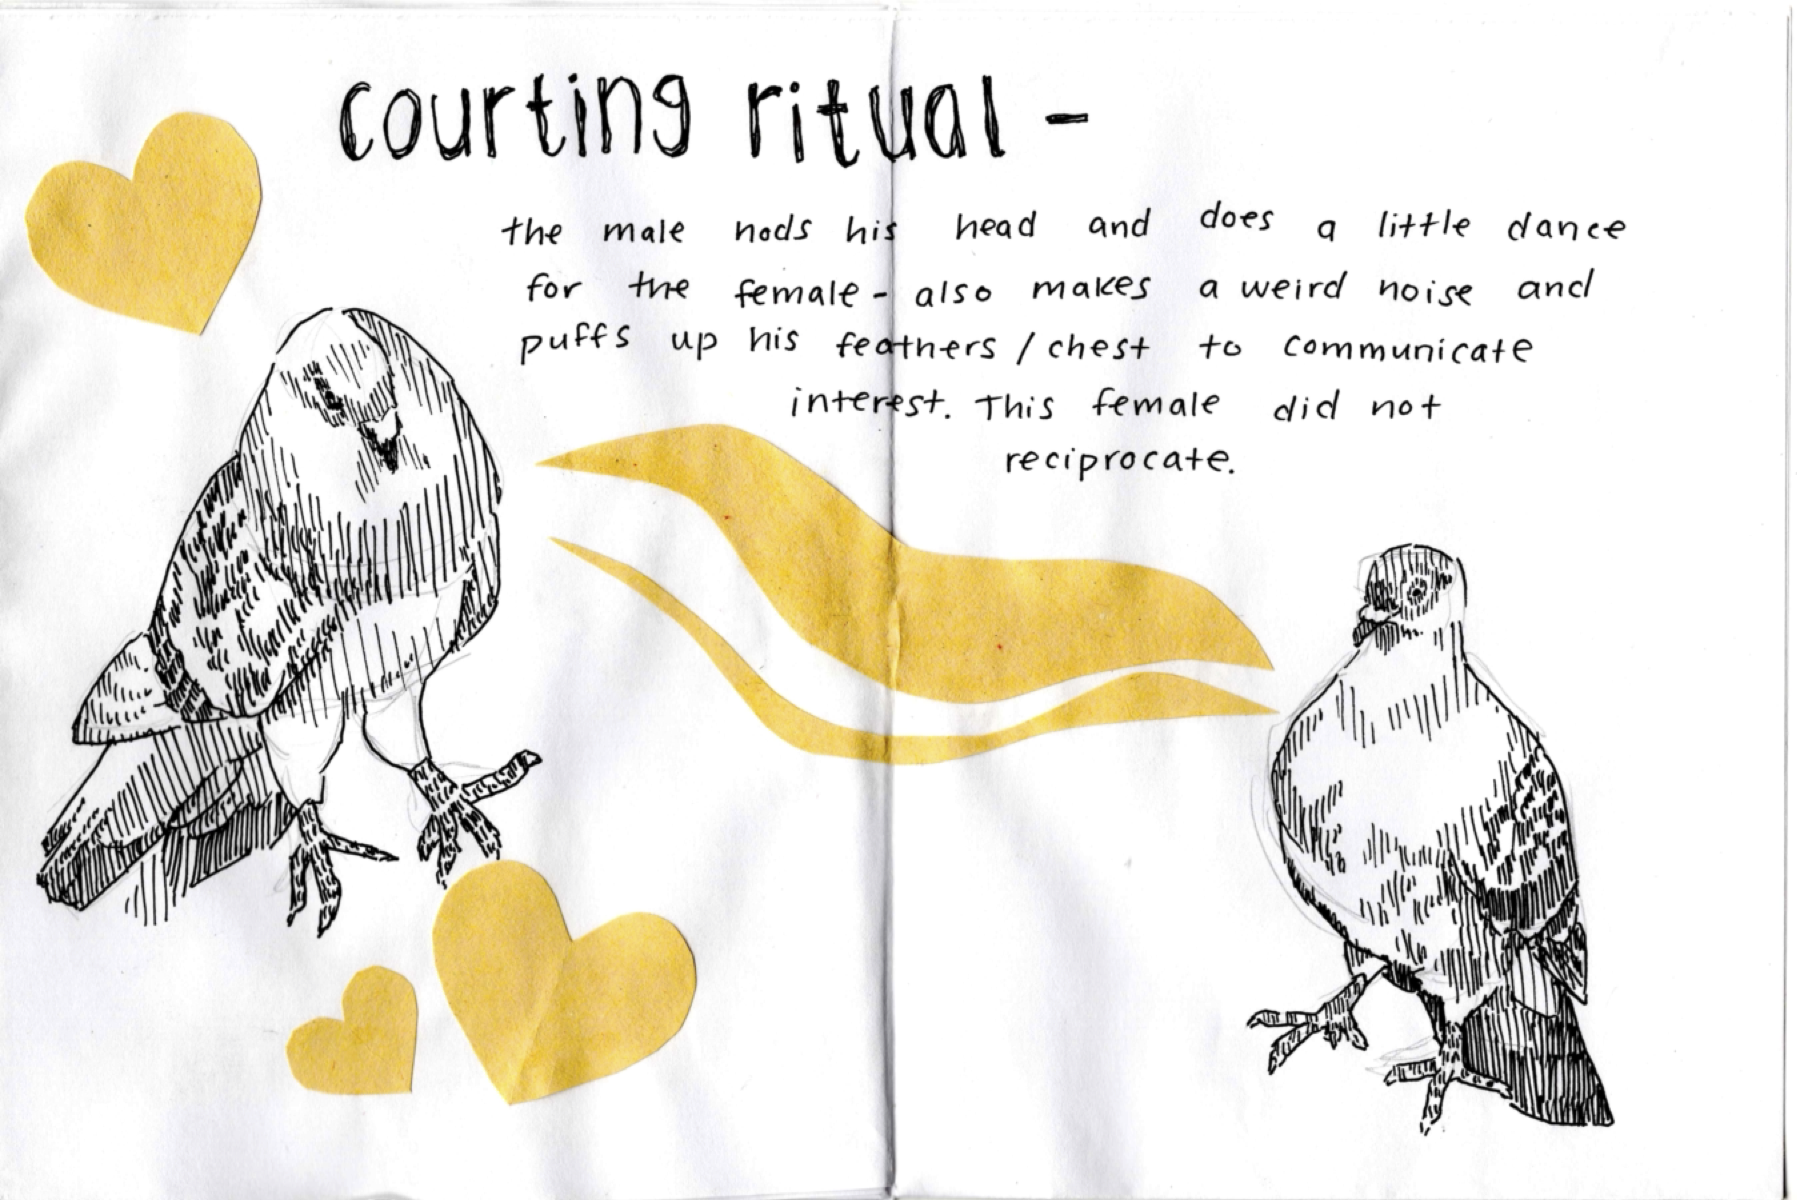 courting ritual -
the male nods his head and does a little dance
for the female - also makes a weird noise and
puffs up his feathers / chest to communicate
interest. This female did not
reciprocate.